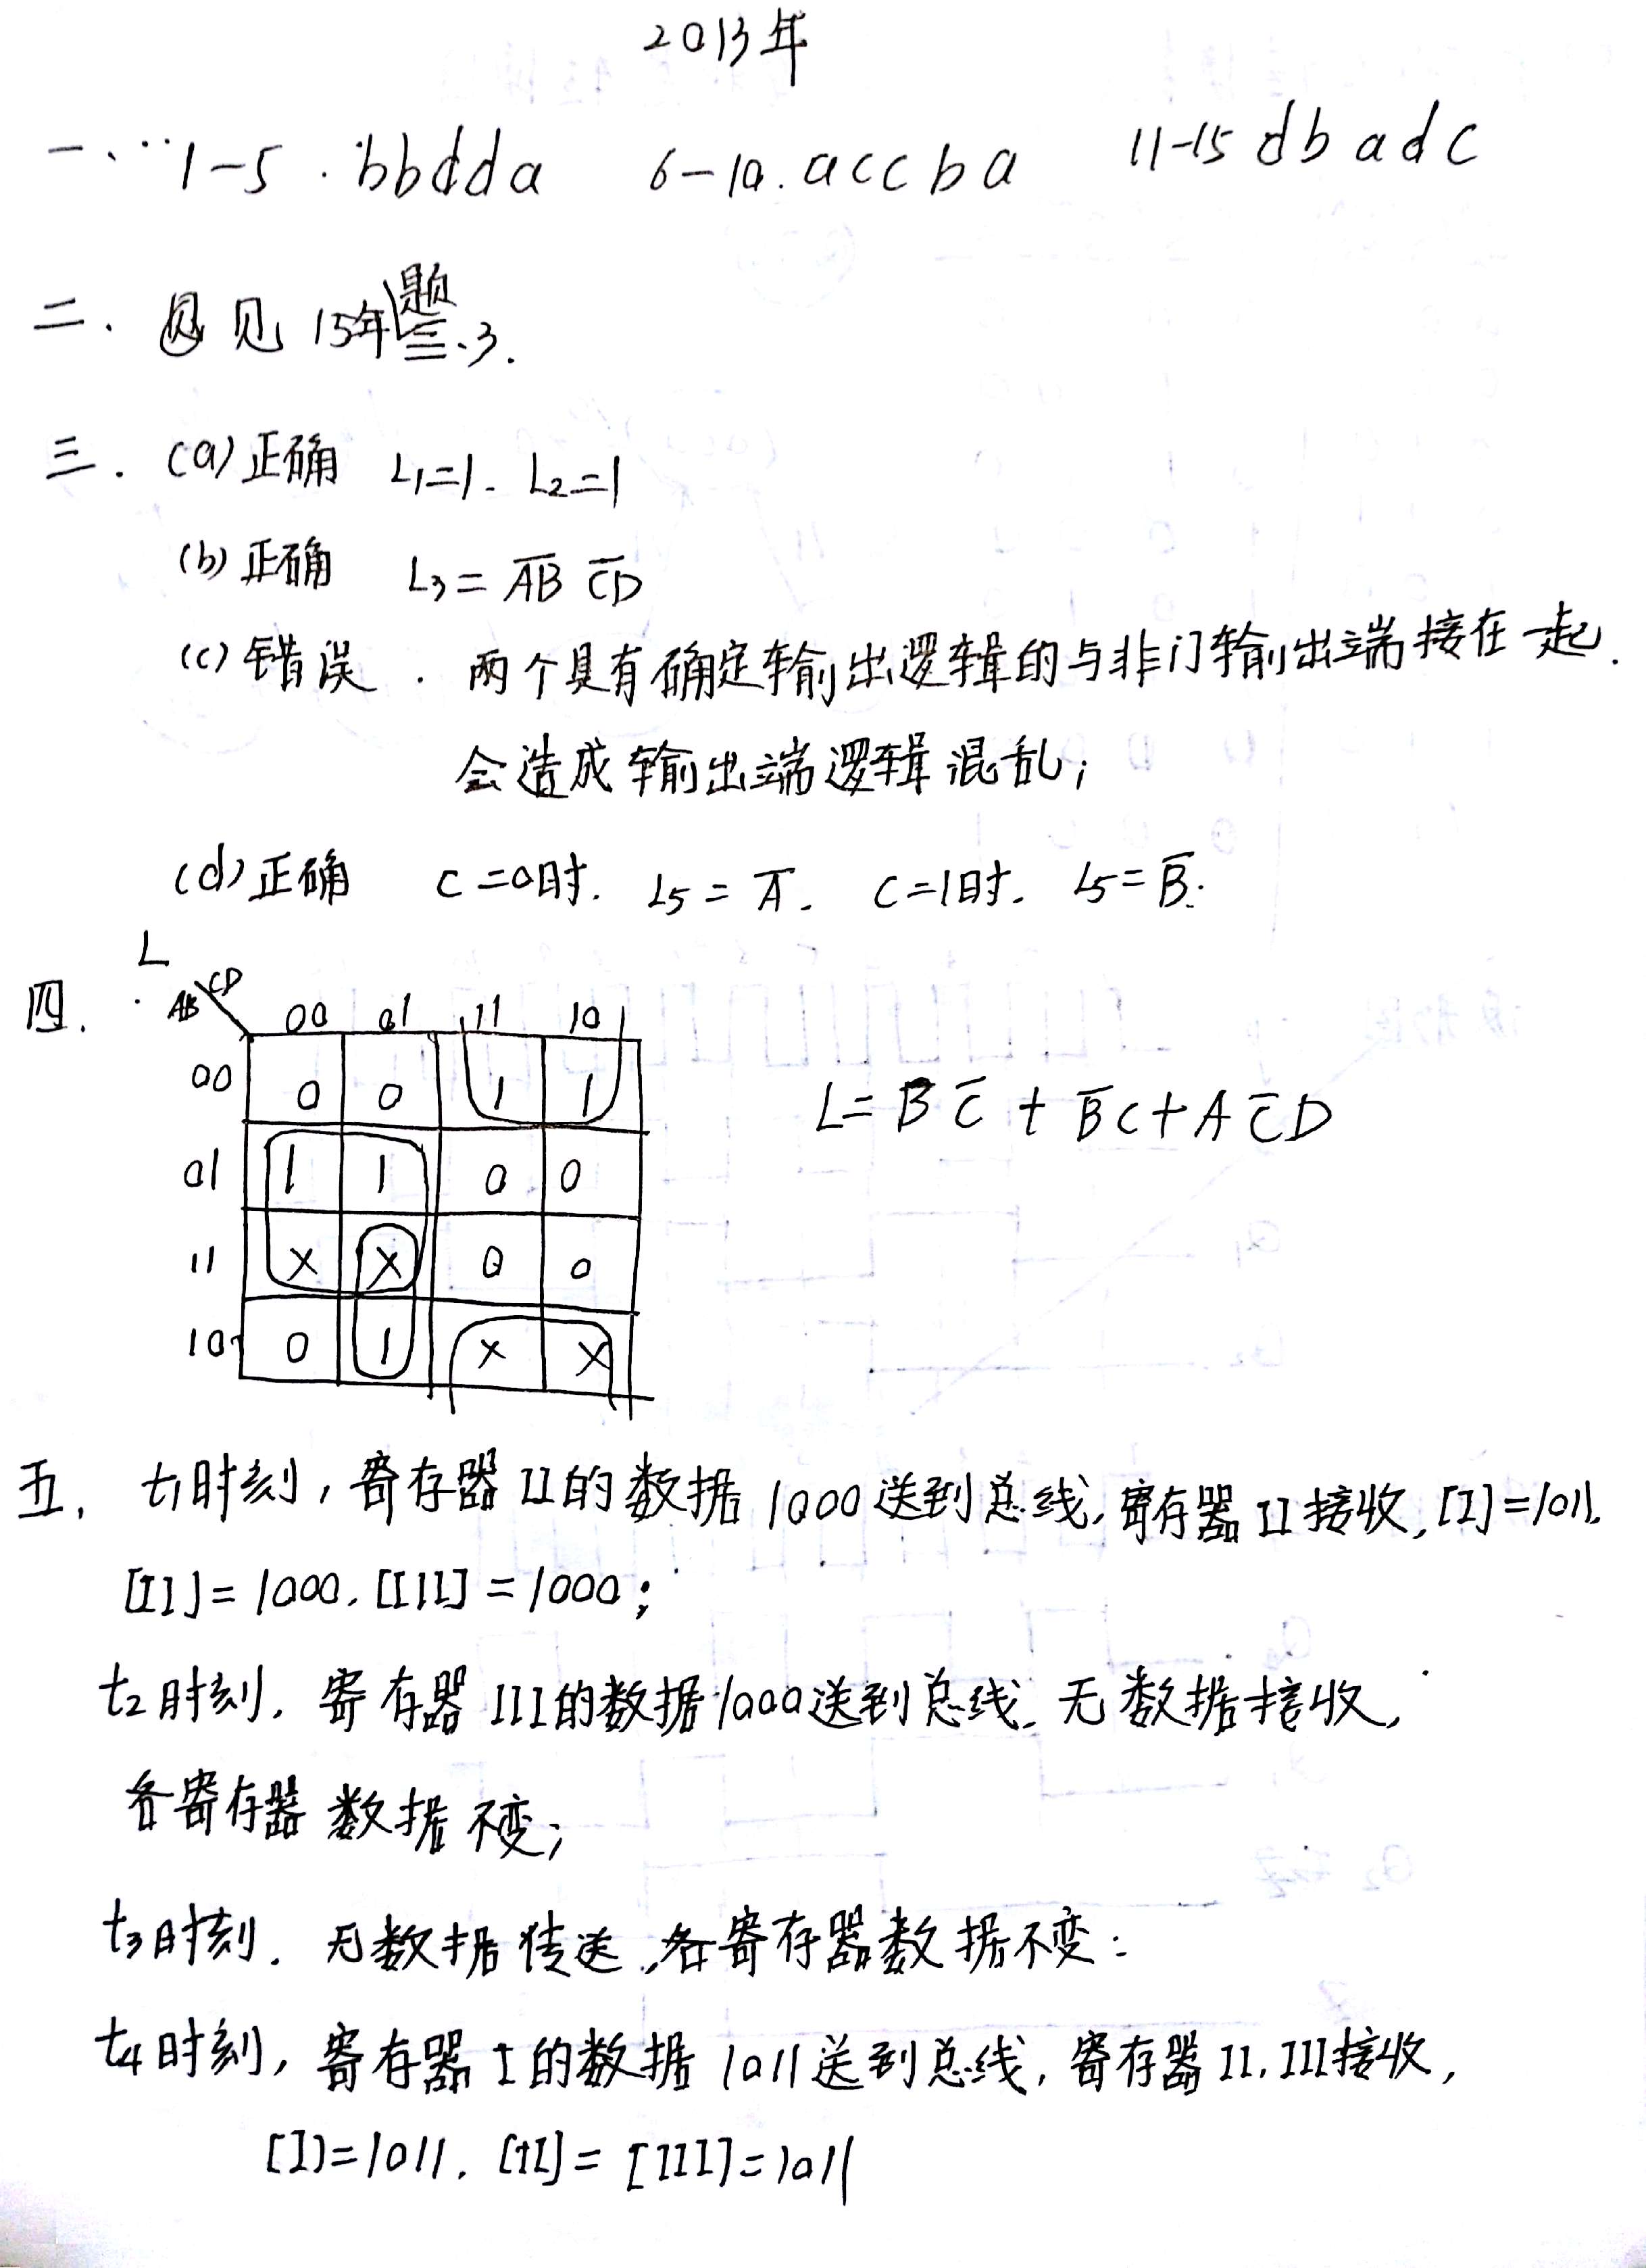 2013年
一、1-5. bbdda 6-10. accba 11-15 dbadc
二. 见 15年题三、3.
三. (a)正确 L₁=1. L₂=1
(b)正确 L₃= A̅B̅ C̅D̅
(c)错误. 两个具有确定输出逻辑的与非门输出端接在一起.
会造成输出端逻辑混乱;
(d)正确 C=0时. L5 = A̅. C=1时. L5 = B̅.
四. L
AB CD 00 01 11 10
00 0 0 1 1
01 1 1 0 0
11 X X 0 0
10 0 1 X X
L= B C̅ + B̅ C + A C̅ D
五. t1时刻, 寄存器II的数据1000送到总线, 寄存器II接收, [I]=1011.
[II]=1000, [III]=1000;
t2时刻, 寄存器III的数据1000送到总线. 无数据接收,
各寄存器数据不变;
t3时刻. 无数据传送, 各寄存器数据不变:
t4时刻, 寄存器I的数据1011送到总线, 寄存器II. III接收,
[I]=1011. [II]=[III]=1011